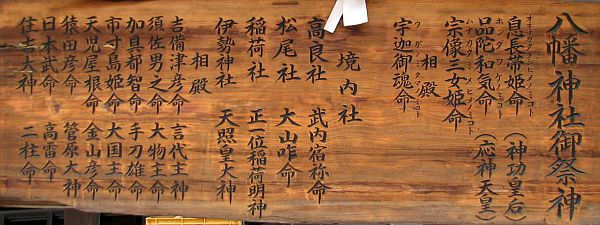 八幡神社御祭神
息長帯姫命（神功皇后）
品陀和気命（応神天皇）
ホンダワケノミコト
宗像三女姫命
相殿
宇迦御魂命
境内社
高良社 武内宿祢命
松尾社 大山咋命
稲荷社 正一位稲荷明神
伊勢神社 天照皇大神
相殿
吉備津彦命 言代主神
須佐男之命 大物主命
加具都智命 手刀雄命
市寸島姫命 大国主命
天児屋根命 金山彦命
猿田彦命 管原大神
日本武命 高雷命
住吉大神 二柱命